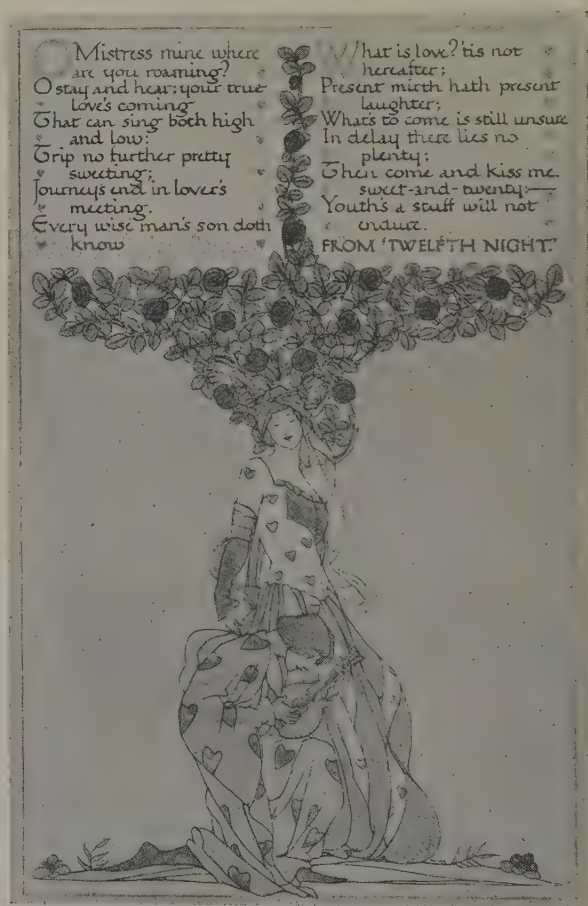 O Mistress mine where
are you roaming?
O stay and hear; your true
love's coming
That can sing both high
and low:
Trip no further pretty
sweeting;
Journeys end in lover's
meeting,
Every wise man's son doth
know
What is love? 'tis not
hereafter;
Present mirth hath present
laughter;
What's to come is still unsure
In delay there lies no
plenty;
Then come and kiss me.
sweet-and-twenty:—
Youth's a stuff will not
endure.
FROM 'TWELFTH NIGHT.'